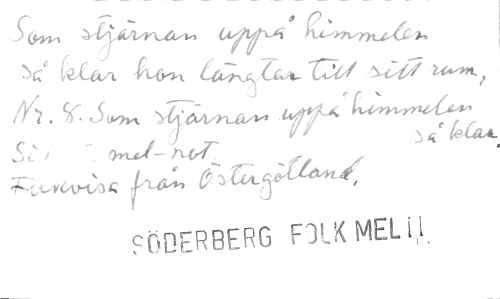 Som stjärnan uppå himmelen
så klar hon längtar till sitt rum,
Nr. 8. Som stjärnan uppå himmelen
så klar.
mel-not.
Folkvisa från Östergötland.
SÖDERBERG FOLK MEL